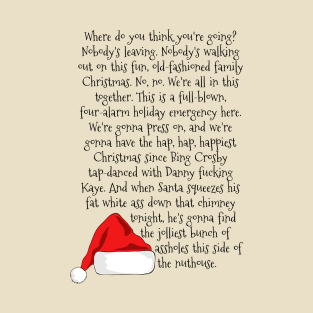 Where do you think you're going?
Nobody's leaving. Nobody's walking
out on this fun, old-fashioned family
Christmas. No, no. We're all in this
together. This is a full-blown,
four-alarm holiday emergency here.
We're gonna press on, and we're
gonna have the hap, hap, happiest
Christmas since Bing Crosby
tap-danced with Danny fucking
Kaye. And when Santa squeezes his
fat white ass down that chimney
tonight, he's gonna find
the jolliest bunch of
assholes this side of
the nuthouse.